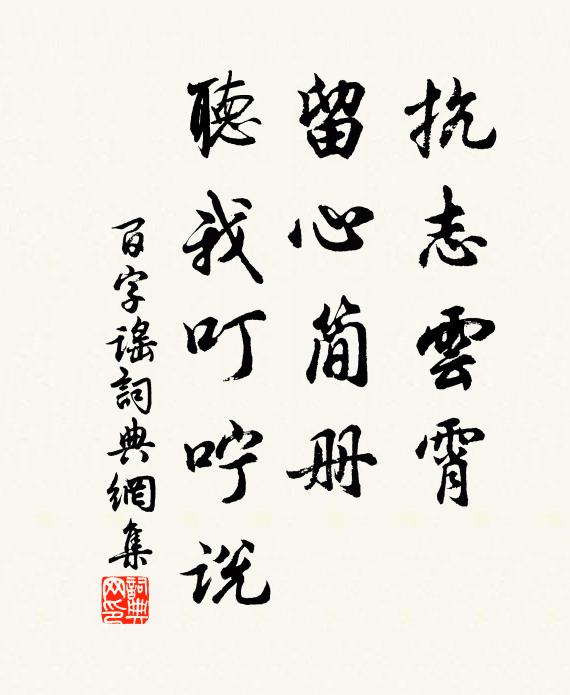 抗志雲霄
留心簡册
聽我叮咛说
百字謠詞典網集
詞典网印